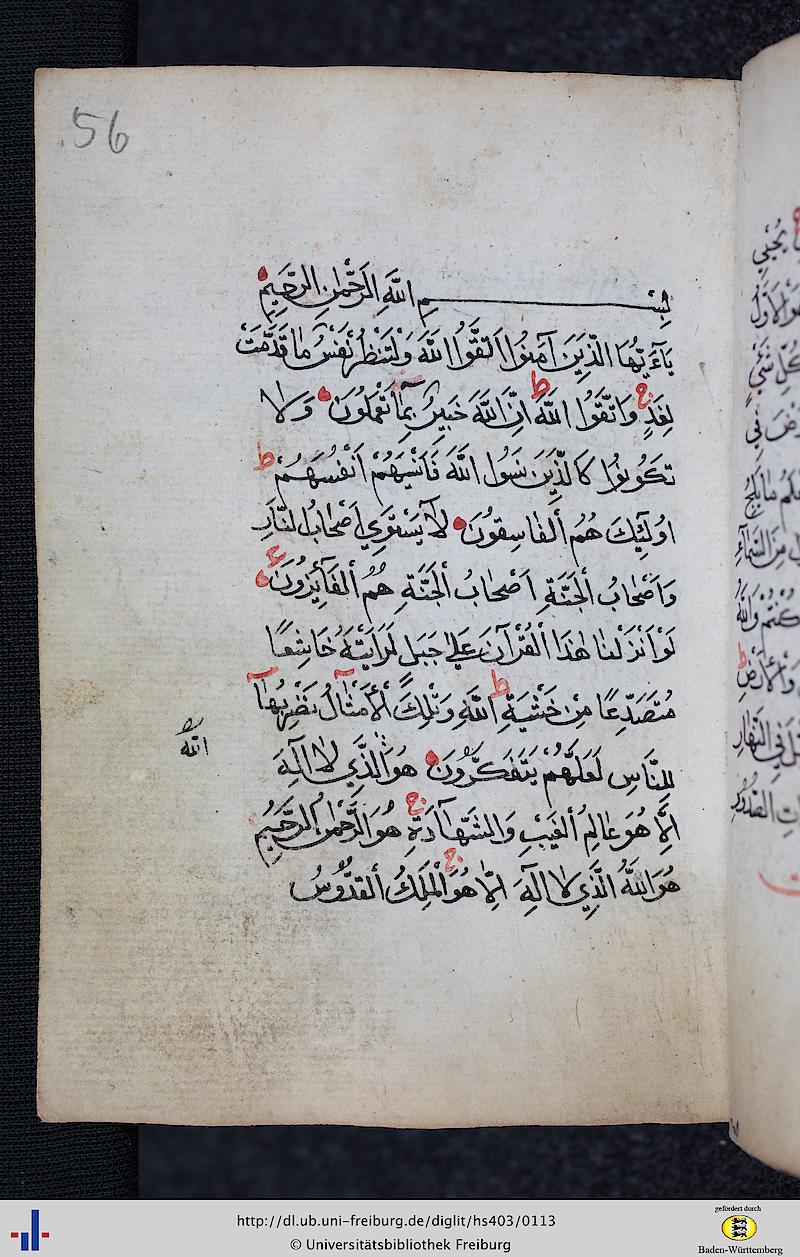 56
بِسْمِ اللَّهِ الرَّحْمٰنِ الرَّحِيمِ
يَاءَيُّهَا الَّذِينَ آمَنُوا اتَّقُوا اللَّهَ وَلْتَنْظُرْ نَفْسٌ مَا قَدَّمَتْ
لِغَدٍ ج وَاتَّقُوا اللَّهَ ط اِنَّ اللَّهَ خَبِيرٌ بِمَا تَعْمَلُونَ وَلَا
تَكُونُوا كَالَّذِينَ نَسُوا اللَّهَ فَاَنْسٰيهُمْ اَنْفُسَهُمْ ط
اُولٰئِكَ هُمُ الْفَاسِقُونَ لَا يَسْتَوِي اَصْحَابُ النَّارِ
وَاَصْحَابُ الْجَنَّةِ اَصْحَابُ الْجَنَّةِ هُمُ الْفَآئِزُونَ ع
لَوْ اَنْزَلْنَا هٰذَا الْقُرْآنَ عَلٰي جَبَلٍ لَرَاَيْتَهُ خَاشِعًا
مُتَصَدِّعًا مِنْ خَشْيَةِ اللَّهِ ط وَتِلْكَ الْاَمْثَالُ نَضْرِبُهَا
لِلنَّاسِ لَعَلَّهُمْ يَتَفَكَّرُونَ هُوَ الَّذِي لَا اِلٰهَ
الله
اِلَّا هُوَ عَالِمُ الْغَيْبِ وَالشَّهَادَةِ ج هُوَ الرَّحْمٰنُ الرَّحِيمُ
هُوَ اللَّهُ الَّذِي لَا اِلٰهَ اِلَّا هُوَ ج الْمَلِكُ الْقُدُّوسُ
http://dl.ub.uni-freiburg.de/diglit/hs403/0113
© Universitätsbibliothek Freiburg
gefördert durch
Baden-Württemberg